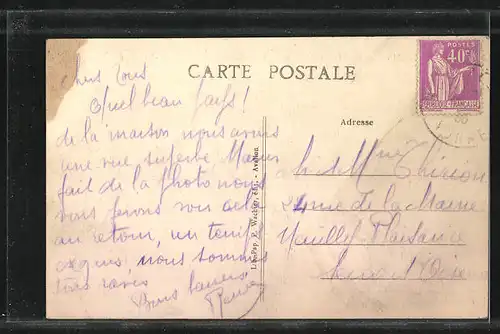 CARTE POSTALE
Adresse
POSTES
40c
REPUBLIQUE FRANÇAISE
Chers tous
Quel beau pays!
de la maison nous avons
une vue superbe
fait de la photo nous
vous ferons voir cela
au retour, un temps
exquis, nous sommes
tous ravis
Bons baisers
M. et Mme
rue de la Marne
Neuilly Plaisance
Seine et Oise
Avallon